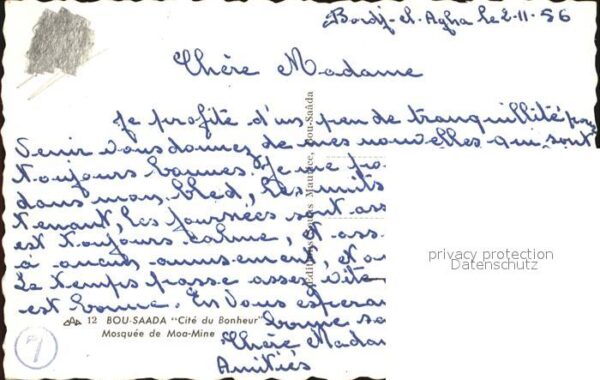 Bordj-el-Agha le 2-11-56
Chère Madame
Je profite d'un peu de tranquillité pour
venir vous donnez de mes nouvelles qui sont
toujours bonnes. Je me
dans mon bled, les nuits
tenant, les journées sont ass
est toujours calme, et ass
à aucun amusement, et
Le temps passe assez vite
est bonne. En vous espéran
bonne sa
Chère Madam
Amitiés
12 BOU-SAADA "Cité du Bonheur"
Mosquée de Moa-Mine
7
Editions Louis Maurice, Bou-Saâda
privacy protection
Datenschutz